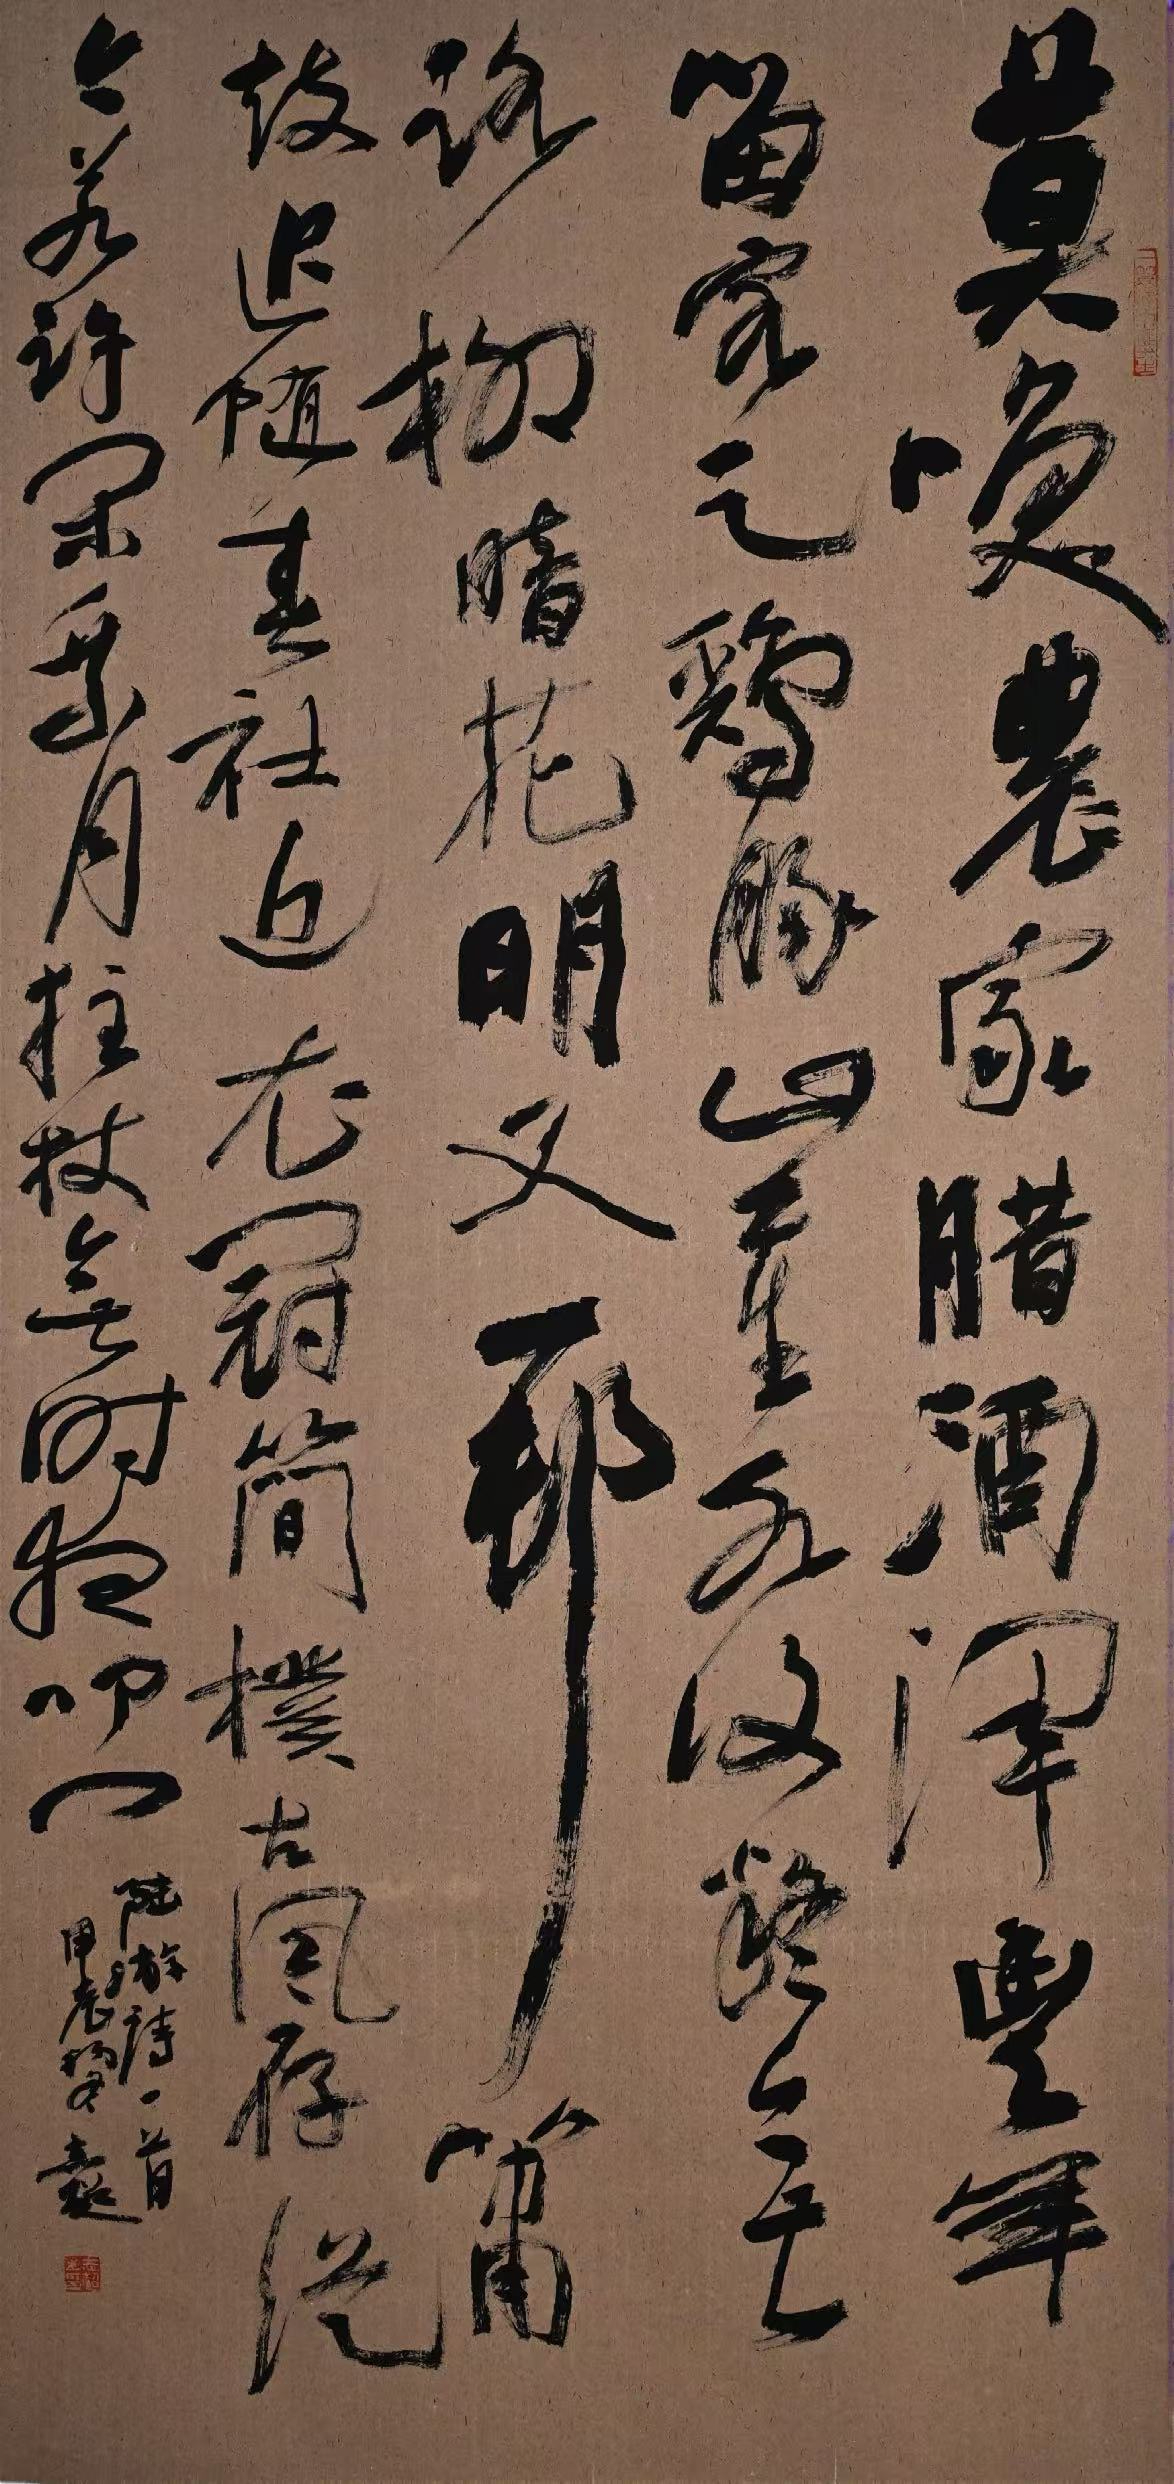 莫咲農家腊酒渾豐年
留客足鷄豚山重水復疑无
路柳暗花明又一邨簫
鼓追随春社近衣冠簡樸古風存從
今若許閑乘月拄杖無時夜叩門
陸游詩一首
甲辰